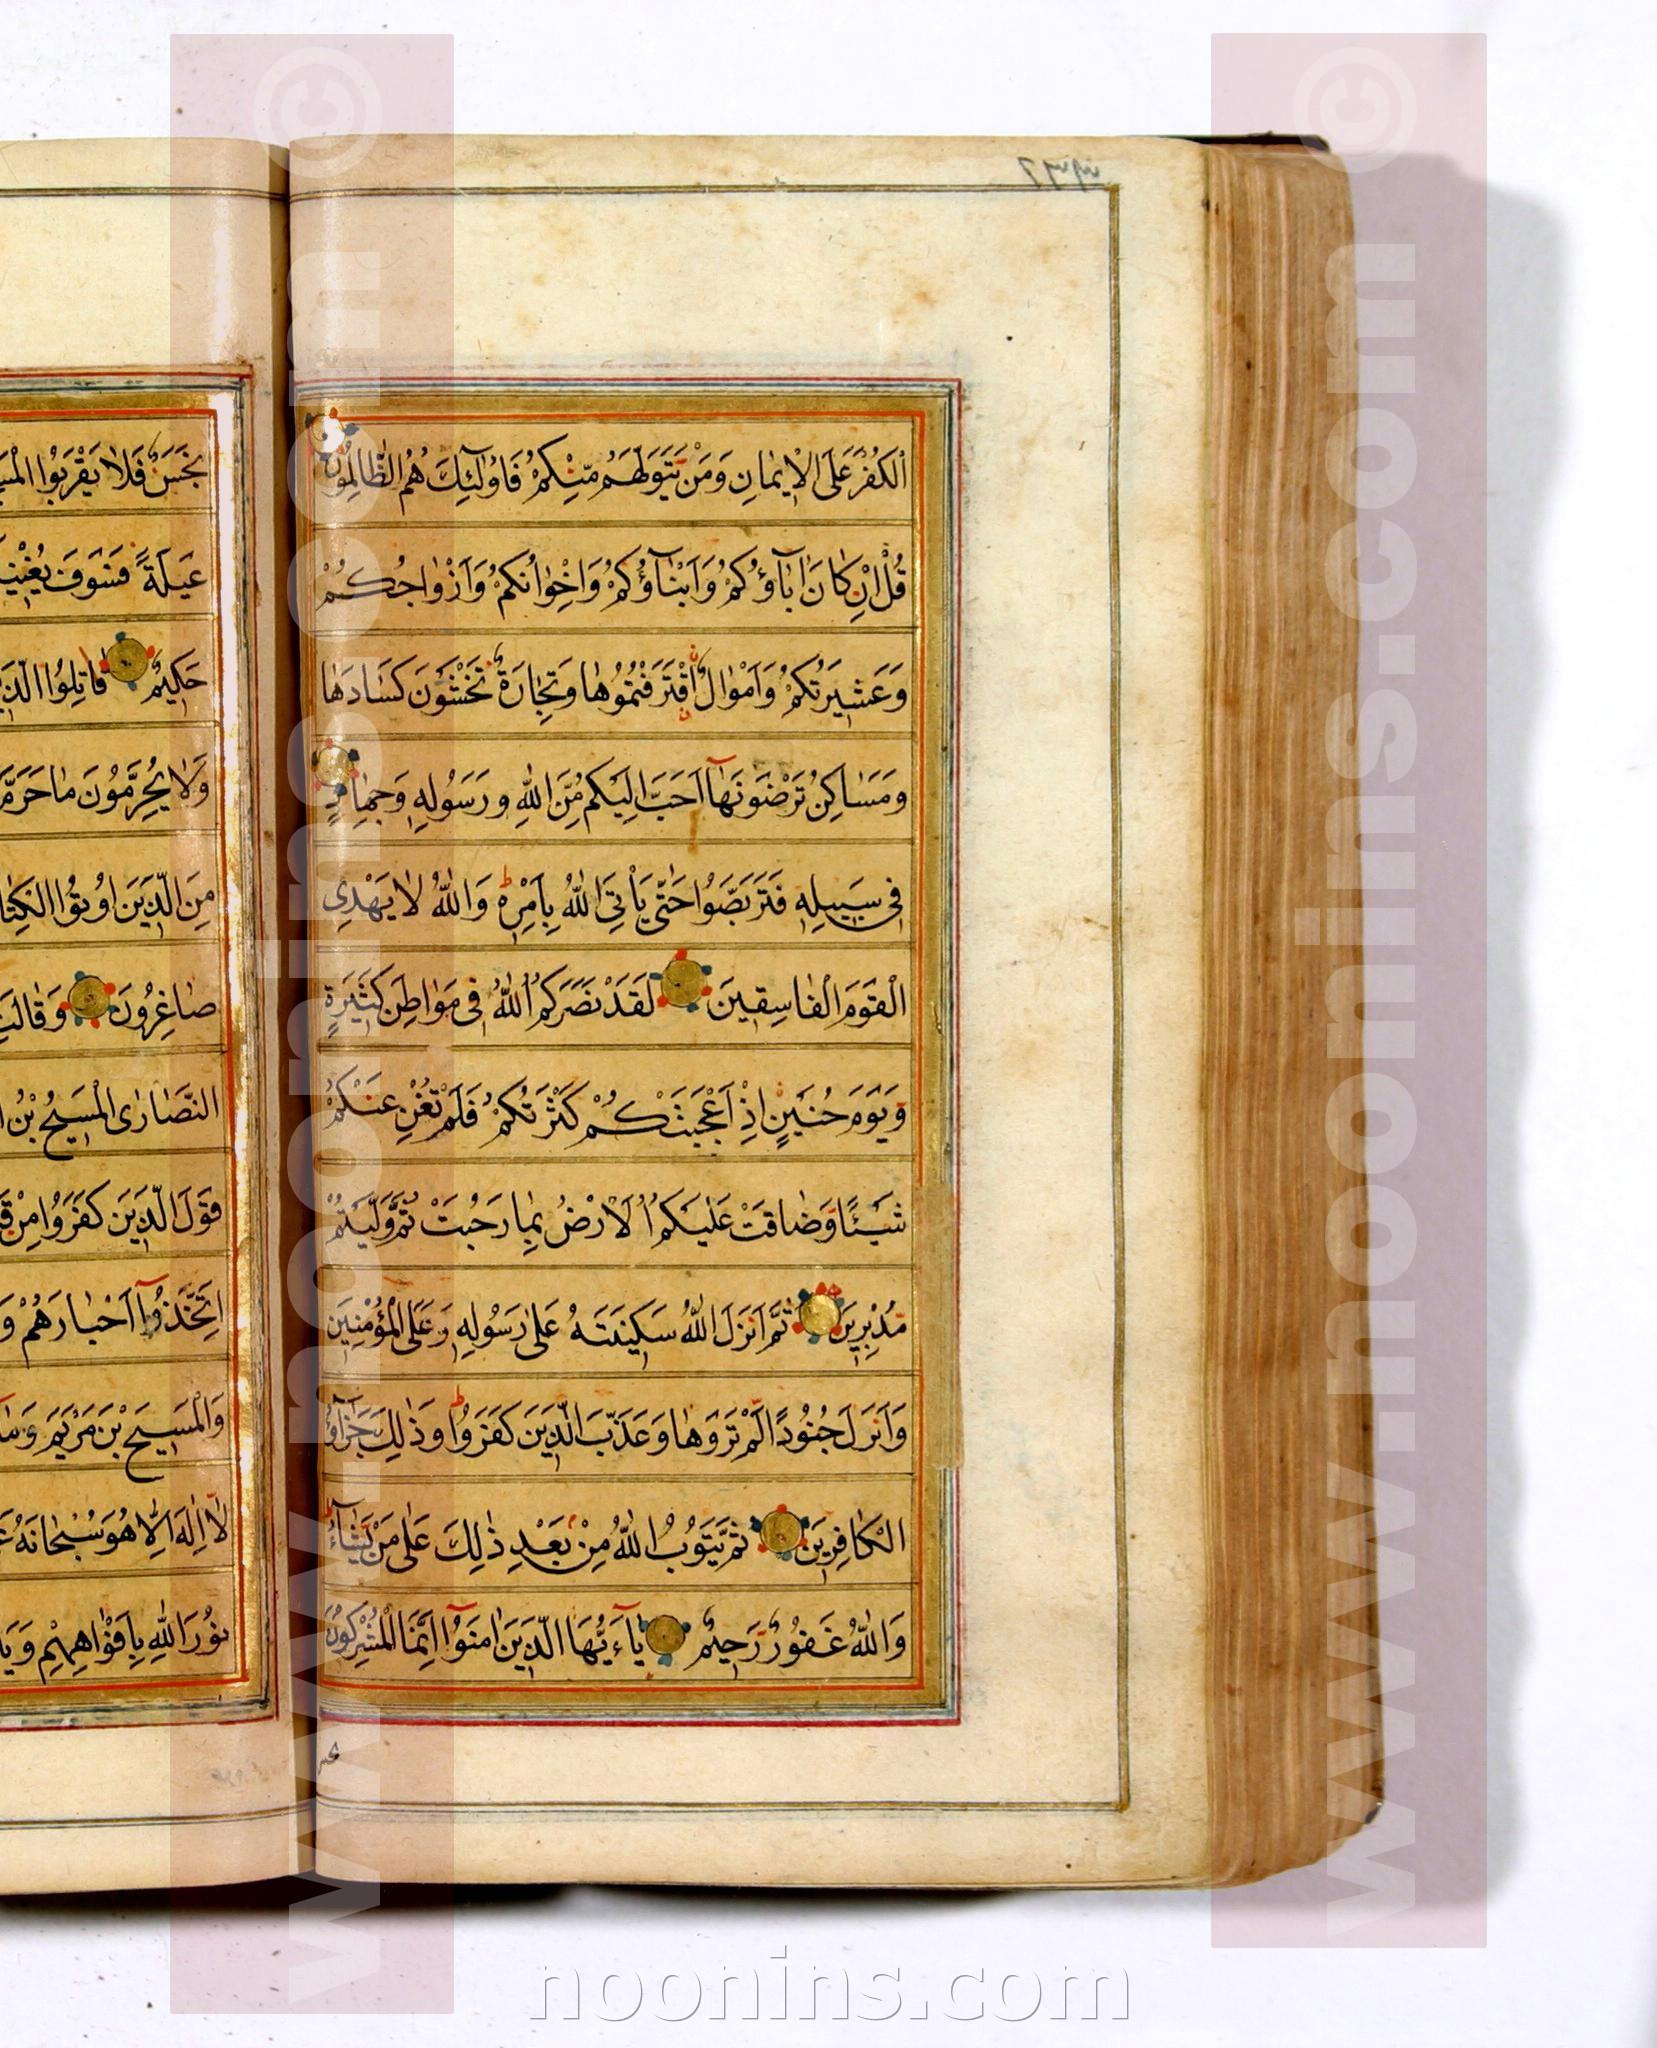 اَلْكُفْرَ عَلَى الْاِيمٰانِ وَمَنْ يَتَوَلَّهُمْ مِنْكُمْ فَاُولٰٓئِكَ هُمُ الظّٰالِمُونَ
قُلْ اِنْ كٰانَ اٰبٰآؤُكُمْ وَاَبْنٰآؤُكُمْ وَاِخْوٰانُكُمْ وَاَزْوٰاجُكُمْ
وَعَشِيرَتُكُمْ وَاَمْوٰالٌ اقْتَرَفْتُمُوهٰا وَتِجٰارَةٌ تَخْشَوْنَ كَسٰادَهٰا
وَمَسٰاكِنُ تَرْضَوْنَهٰآ اَحَبَّ اِلَيْكُمْ مِنَ اللّٰهِ وَرَسُولِهِ وَجِهٰادٍ
فِى سَبِيلِهِ فَتَرَبَّصُوا حَتّٰى يَاْتِىَ اللّٰهُ بِاَمْرِهِ وَاللّٰهُ لٰا يَهْدِى
الْقَوْمَ الْفٰاسِقِينَ لَقَدْ نَصَرَكُمُ اللّٰهُ فِى مَوٰاطِنَ كَثِيرَةٍ
وَيَوْمَ حُنَيْنٍ اِذْ اَعْجَبَتْكُمْ كَثْرَتُكُمْ فَلَمْ تُغْنِ عَنْكُمْ
شَيْئًا وَضٰاقَتْ عَلَيْكُمُ الْاَرْضُ بِمٰا رَحُبَتْ ثُمَّ وَلَّيْتُمْ
مُدْبِرِينَ ثُمَّ اَنْزَلَ اللّٰهُ سَكِينَتَهُ عَلٰى رَسُولِهِ وَعَلَى الْمُؤْمِنِينَ
وَاَنْزَلَ جُنُودًا لَمْ تَرَوْهٰا وَعَذَّبَ الَّذِينَ كَفَرُوا وَذٰلِكَ جَزٰآؤُ
الْكٰافِرِينَ ثُمَّ يَتُوبُ اللّٰهُ مِنْ بَعْدِ ذٰلِكَ عَلٰى مَنْ يَشٰآءُ
وَاللّٰهُ غَفُورٌ رَحِيمٌ يٰآءَيُّهَا الَّذِينَ اٰمَنُوآ اِنَّمَا الْمُشْرِكُونَ
نجس
نَجَسٌ فَلٰا يَقْرَبُوا
عَيْلَةً فَسَوْفَ
حَكِيمٌ قٰاتِلُوا
وَلٰا يُحَرِّمُونَ مٰا حَرَّمَ
مِنَ الَّذِينَ اُوتُوا
صٰاغِرُونَ وَقٰالَتِ
النَّصٰارٰى الْمَسِيحُ بْنُ
قَوْلَ الَّذِينَ كَفَرُوا مِنْ
اِتَّخَذُوآ اَحْبٰارَهُمْ
وَالْمَسِيحَ بْنَ مَرْيَمَ وَمٰا
لٰآ اِلٰهَ اِلّٰا هُوَ سُبْحٰانَهُ
نُورَ اللّٰهِ بِاَفْوٰاهِهِمْ
www.noonins.com ©
www.noonins.com ©
noonins.com